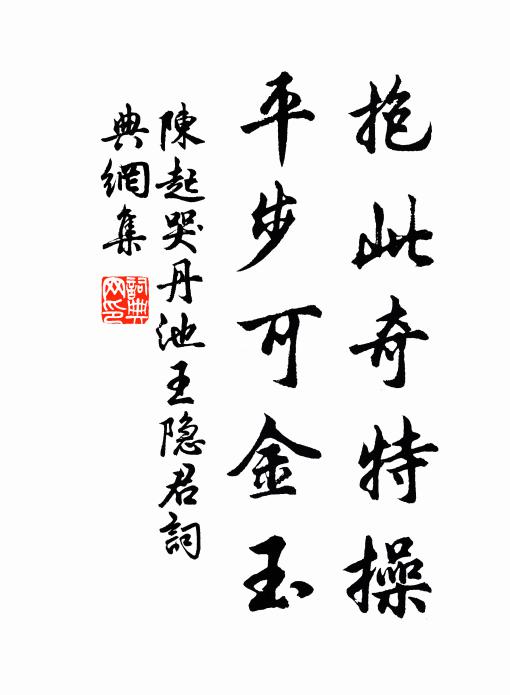 抱此奇特操
平步可金玉
陳起哭丹池王隐君詞
典網集
詞典
网印